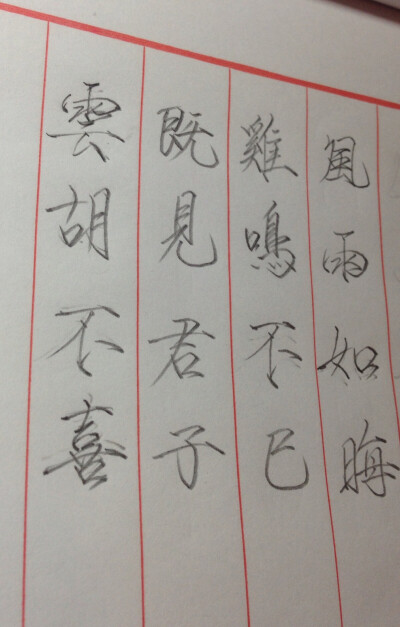 風雨如晦
雞鳴不已
既見君子
雲胡不喜